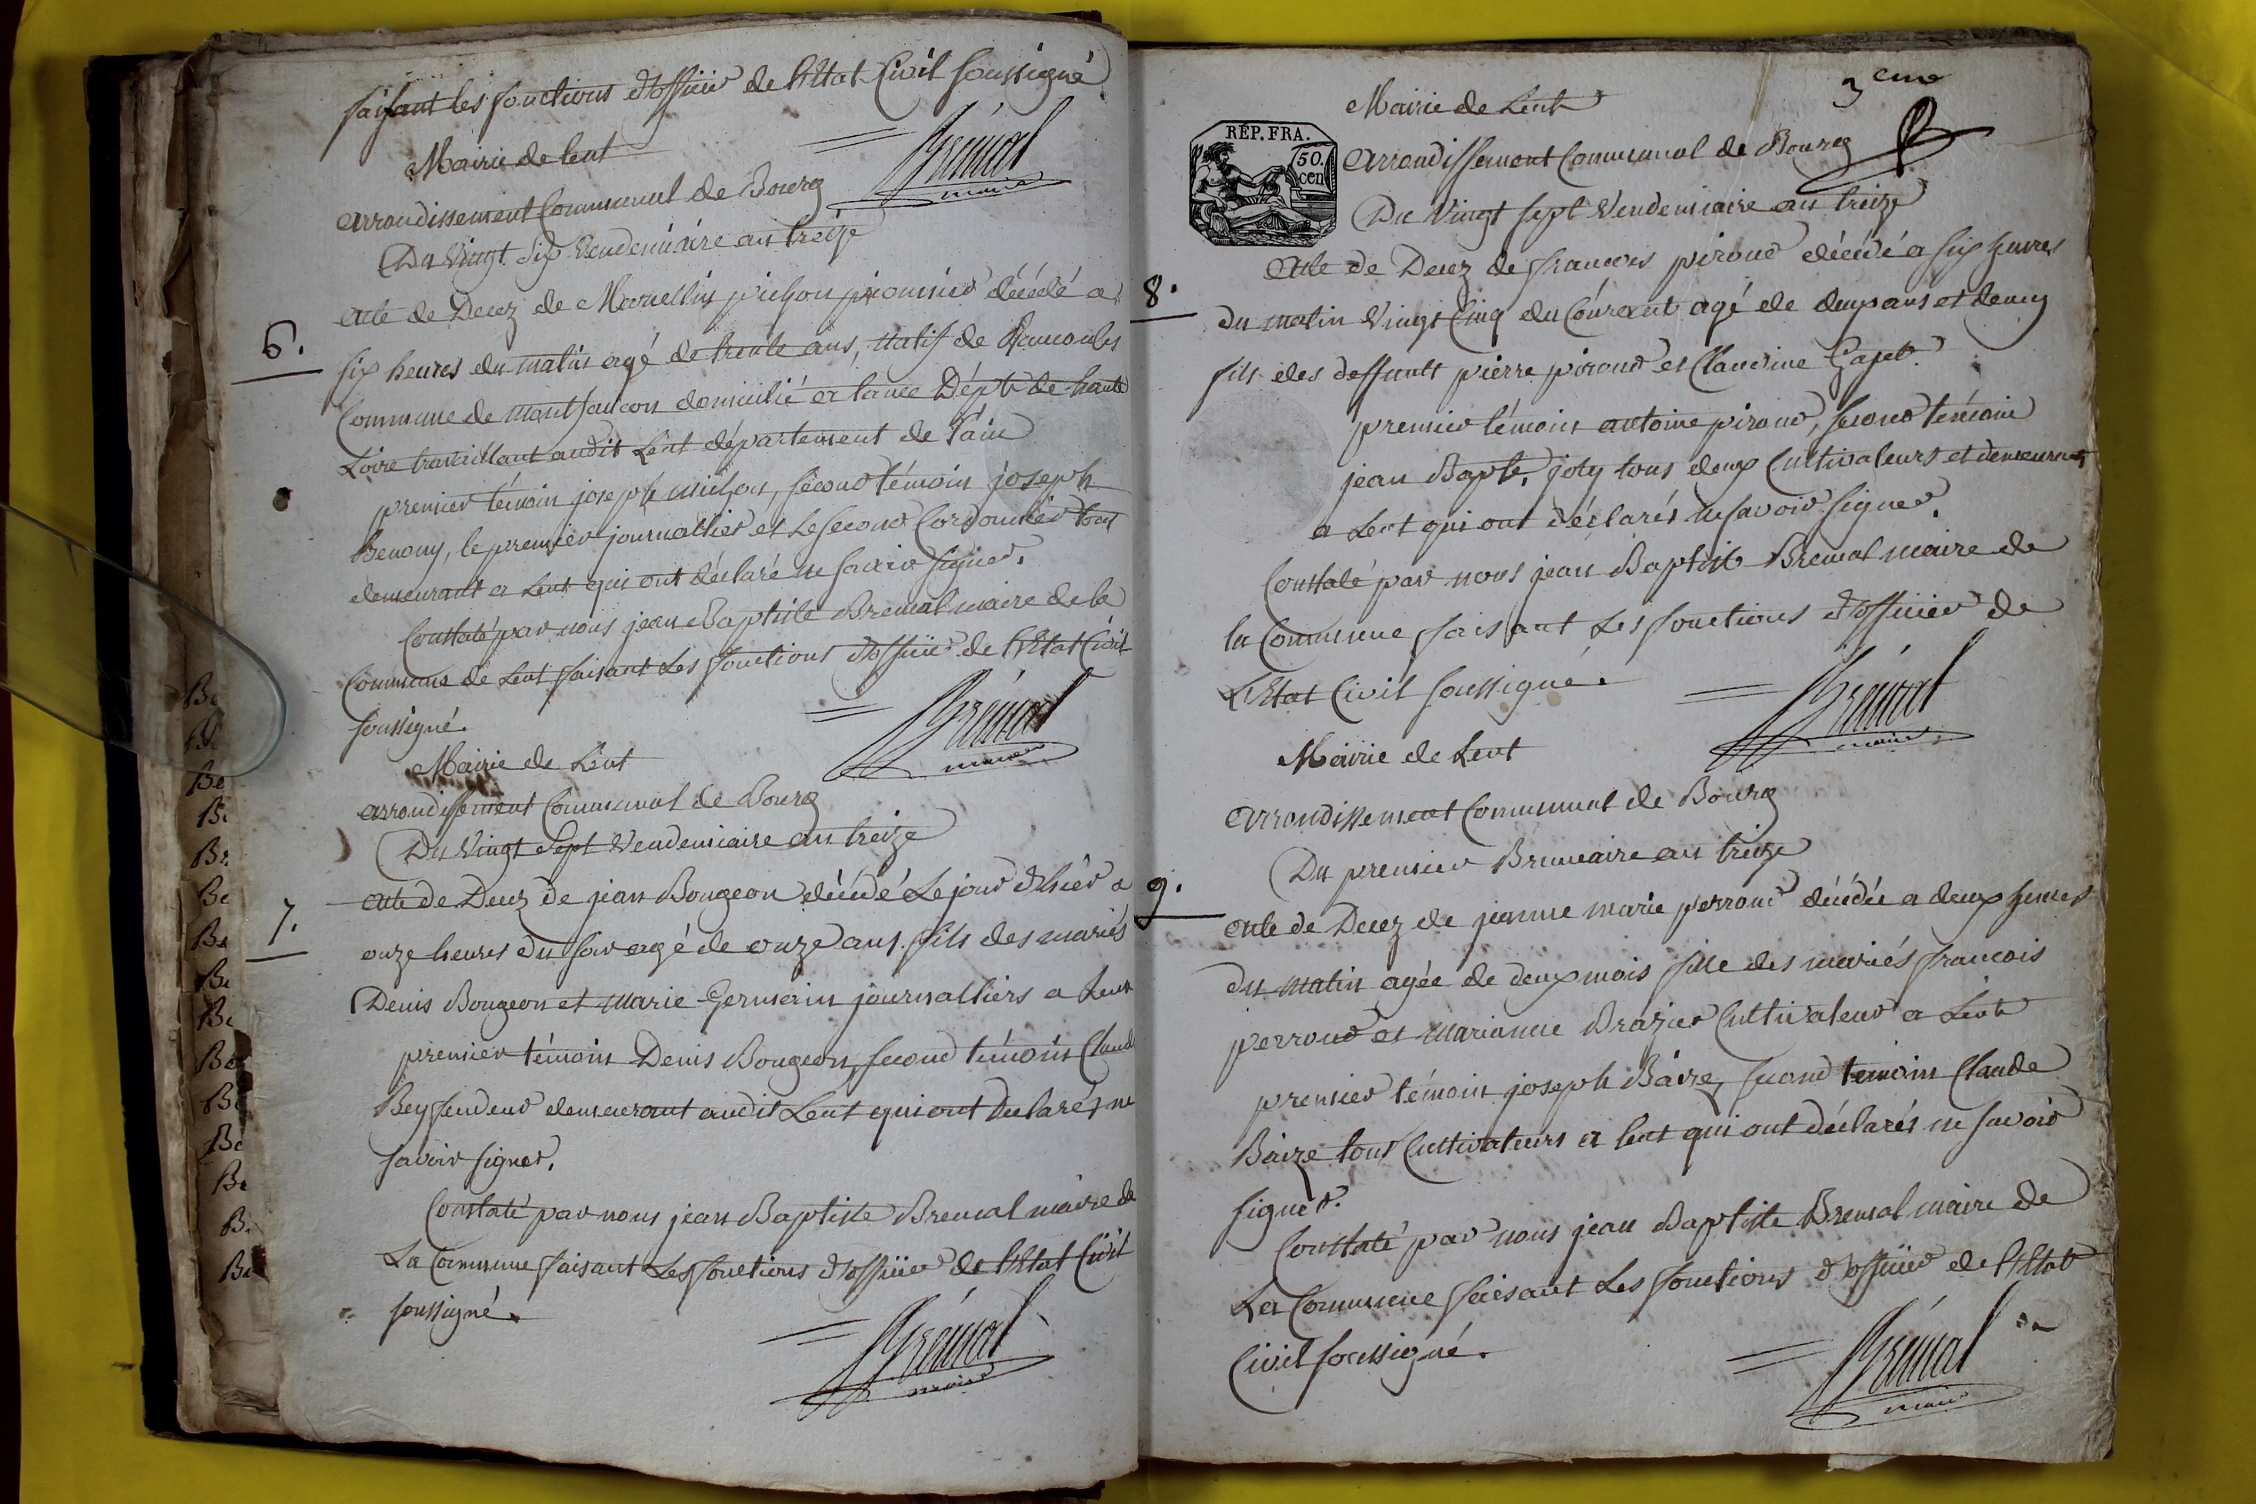 faisant les fonctions d'officier de l'Etat Civil soussigné
Brémal
maire
Mairie de lent
arrondissement Communal de Bourg
Du Vingt Six Vendemiaire an treize
6.
Acte de Decez de Marcellin pichon pionnier décédé a
six heures du matin agé de trente ans, natif de
Commune de montfaucon domicilié a Dépt de haute
Loire travaillant audit Lent département de l'ain
premier témoin joseph michon, second témoin joseph
Benony, le premier journallier et Le second Cordonnier tous
demeurant a Lent qui ont déclaré ne savoir signer.
Constaté par nous jean Baptiste Bremal maire de la
Commune de Lent faisant Les fonctions d'officier de l'Etat Civil
soussigné.
Brémal
maire
Mairie de Lent
arrondissement Communal de Bourg
Du Vingt Sept Vendemiaire an treize
7.
Acte de Decez de jean Bougeon décédé Le jour d'hier a
onze heures du soir agé de onze ans. fils des mariés
Denis Bougeon et marie Germain journalliers a Lent
premier témoin Denis Bougeon, second témoin Claude
Bey fendeur demeurant audit Lent qui ont declarés ne
savoir signer.
Constaté par nous jean Baptiste Bremal maire de
La Commune faisant Les fonctions d'officier de l'Etat Civil
soussigné.
Brémal
maire
3eme
Mairie de Lent
RÉP. FRA.
50.
cen
Arrondissement Communal de Bourg
Du Vingt sept Vendemiaire an treize
8.
Acte de Decez de francois piroud décédé a six heures
du matin Vingt Cinq du Courant agé de deux ans et demy
fils des deffunts pierre piroud et Claudine Gajet.
premier témoin antoine piroud, second témoin
jean Bapte. joly tous deux Cultivateurs et demeurants
a Lent qui ont déclarés ne savoir signer.
Constaté par nous jean Baptiste Bremal maire de
la Commune faisant Les fonctions d'officier de
L'Etat Civil soussigné.
Brémal
maire
Mairie de Lent
arrondissement Communal de Bourg
Du premier Brumaire an treize
9.
Acte de Decez de jeanne marie perroud décédée a deux heures
du matin agée de deux mois fille des mariés francois
perroud et marianne Brazier Cultivateur a Lent
premier témoin joseph Baize, second temoin Claude
Baize tous Cultivateurs a lent qui ont déclarés ne savoir
signer.
Constaté par nous jean Baptiste Bremal maire de
La Commune faisant Les fonctions d'officier de l'Etat
Civil soussigné.
Brémal
maire